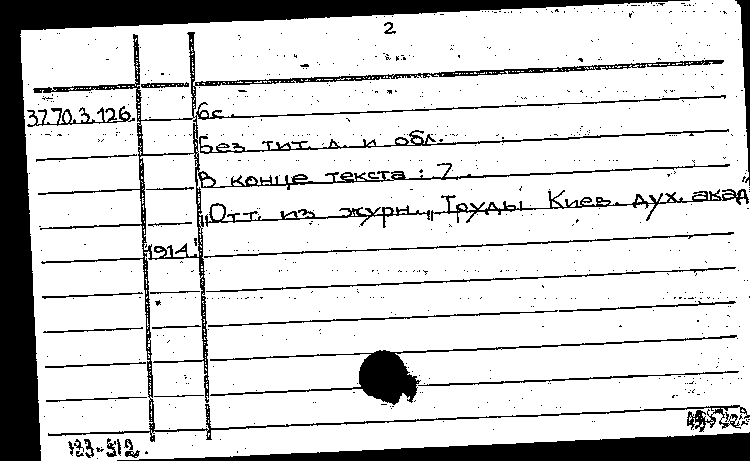 2
37.70.3.126. 6с.
Без тит. л. и обл.
В конце текста: 7.
„Отт. из журн. „Труды Киев. дух. акад"
1914.
183-512.